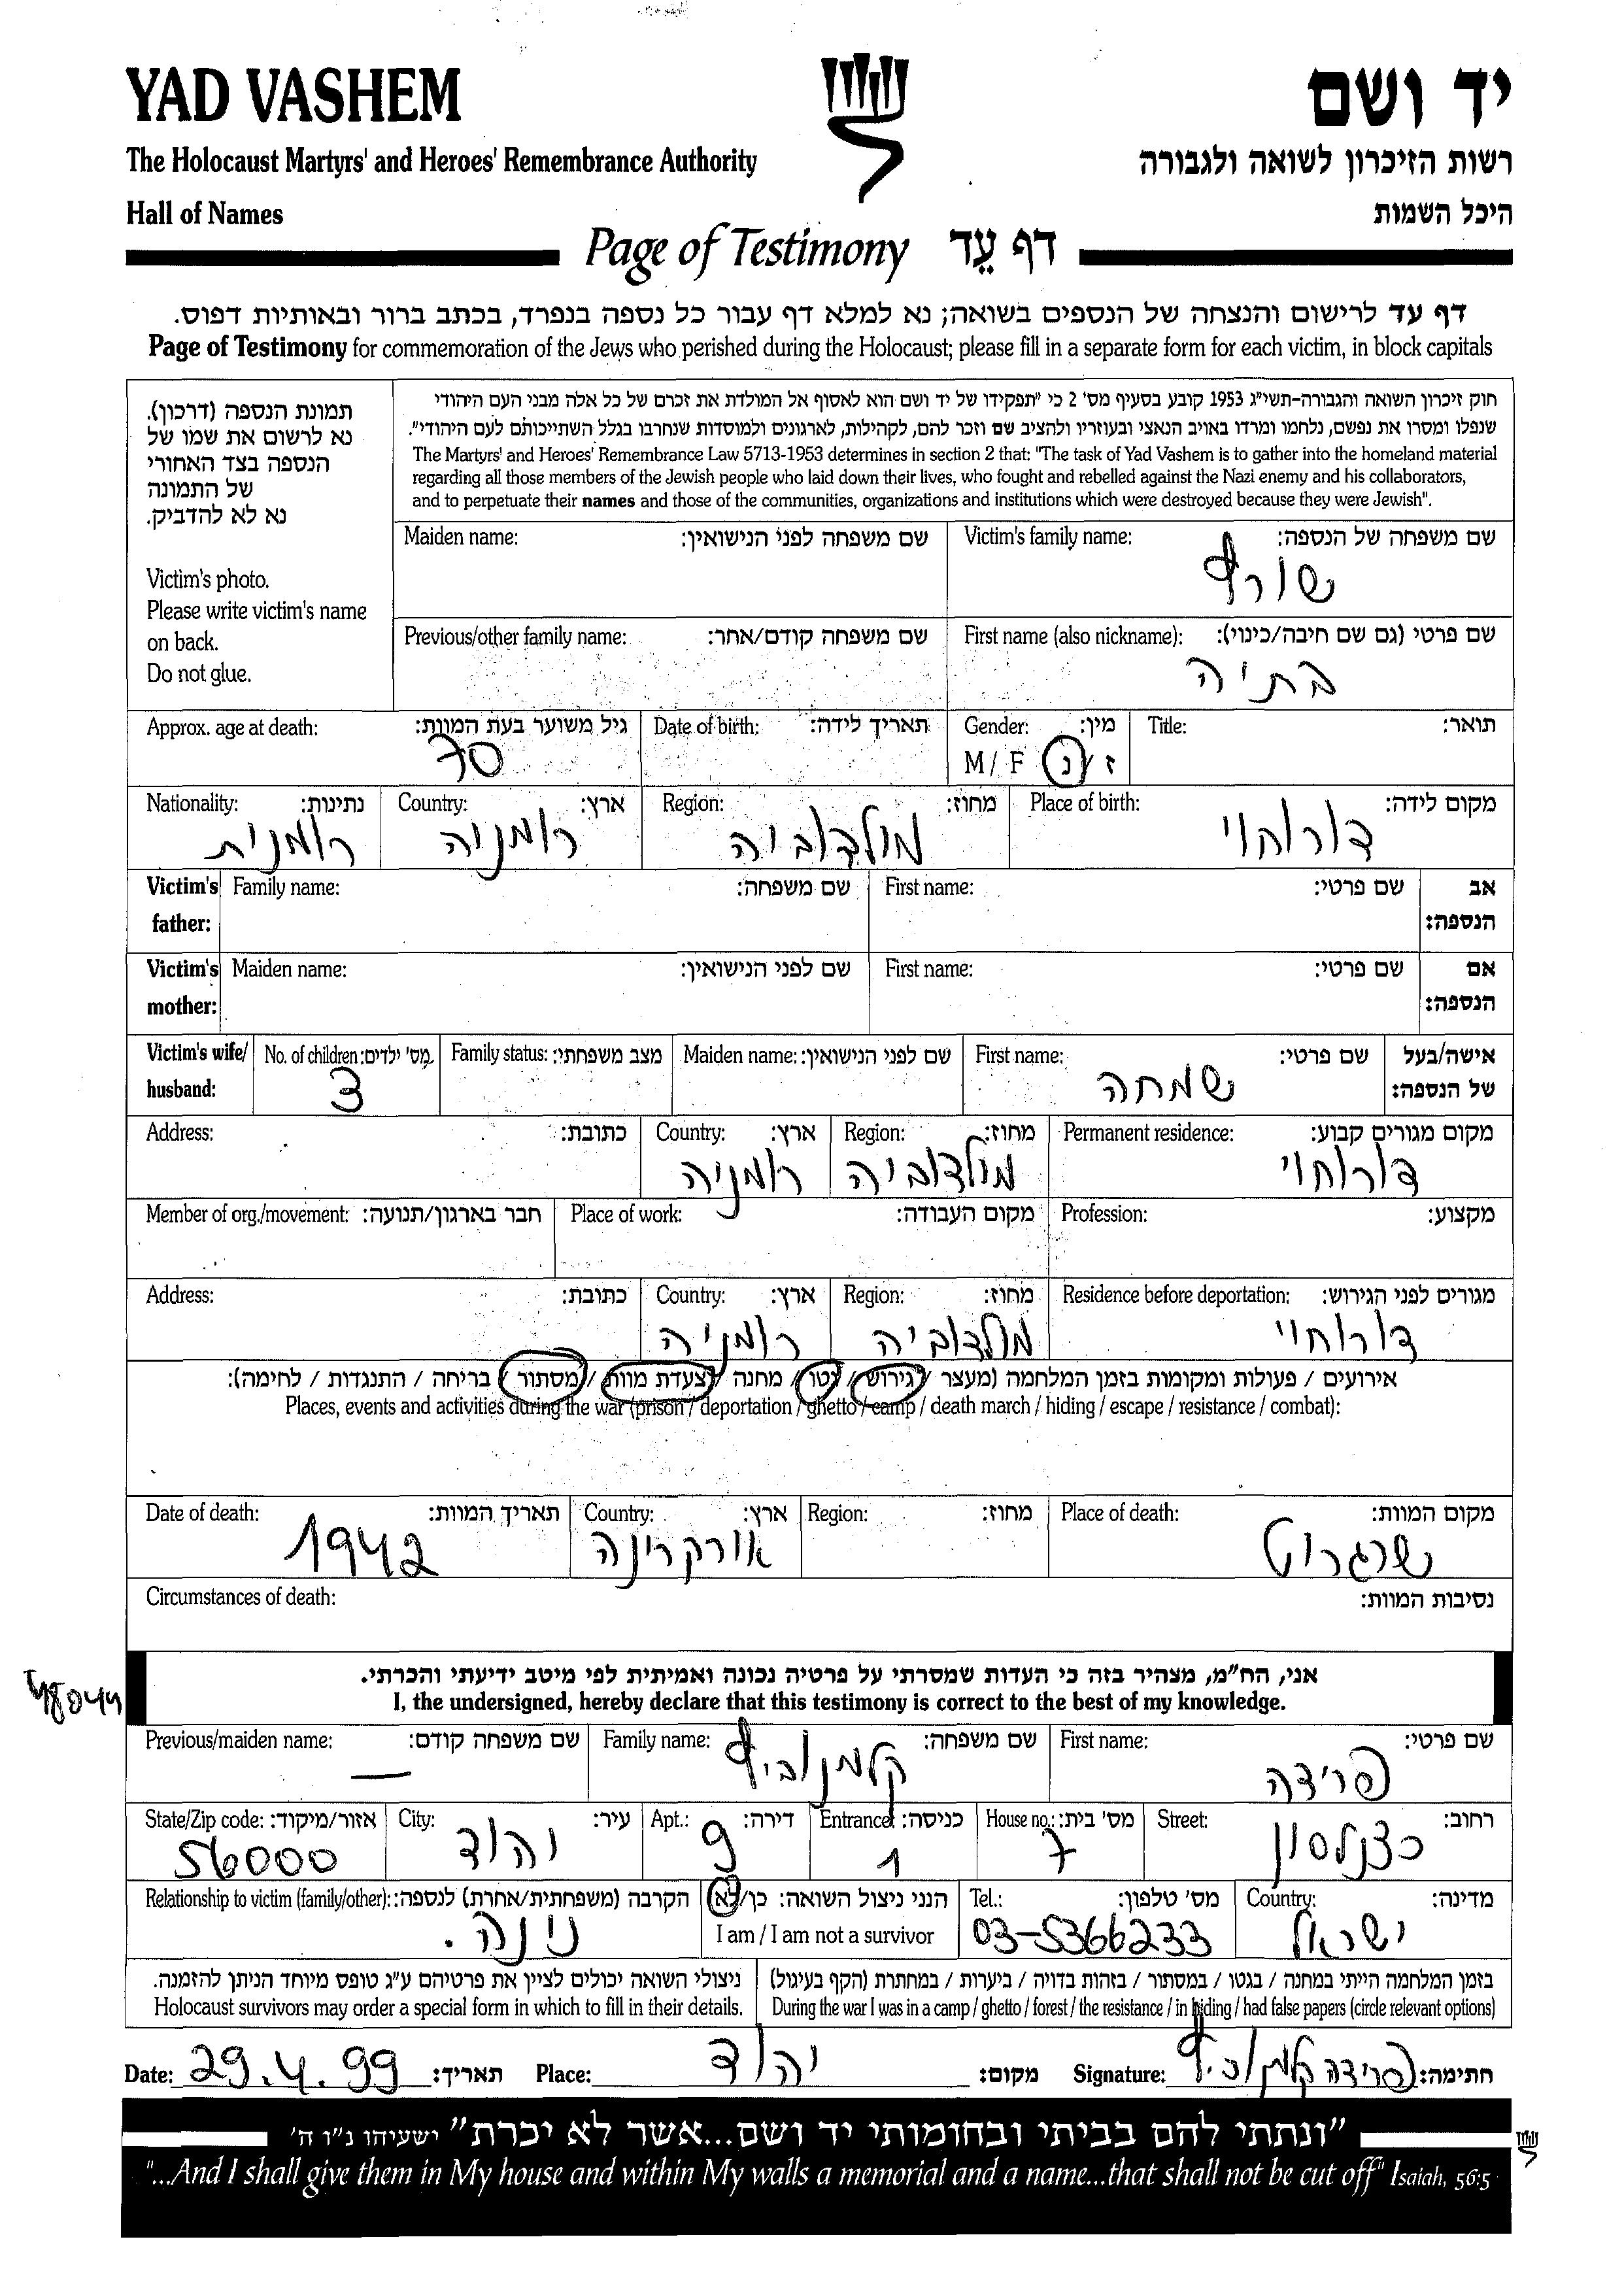 YAD VASHEM
יד ושם
The Holocaust Martyrs' and Heroes' Remembrance Authority
רשות הזיכרון לשואה ולגבורה
Hall of Names
היכל השמות
Page of Testimony דף עֵד
דף עד לרישום והנצחה של הנספים בשואה; נא למלא דף עבור כל נספה בנפרד, בכתב ברור ובאותיות דפוס.
Page of Testimony for commemoration of the Jews who perished during the Holocaust; please fill in a separate form for each victim, in block capitals
תמונת הנספה (דרכון).
נא לרשום את שמו של
הנספה בצד האחורי
של התמונה
נא לא להדביק.
Victim's photo.
Please write victim's name
on back.
Do not glue.
חוק זיכרון השואה והגבורה-תשי"ג 1953 קובע בסעיף מס' 2 כי "תפקידו של יד ושם הוא לאסוף אל המולדת את זכרם של כל אלה מבני העם היהודי
שנפלו ומסרו את נפשם, נלחמו ומרדו באויב הנאצי ובעוזריו ולהציב שם וזכר להם, לקהילות, לארגונים ולמוסדות שנחרבו בגלל השתייכותם לעם היהודי".
The Martyrs' and Heroes' Remembrance Law 5713-1953 determines in section 2 that: "The task of Yad Vashem is to gather into the homeland material
regarding all those members of the Jewish people who laid down their lives, who fought and rebelled against the Nazi enemy and his collaborators,
and to perpetuate their names and those of the communities, organizations and institutions which were destroyed because they were Jewish".
Victim's family name: שם משפחה של הנספה:
שורף
Maiden name: שם משפחה לפני הנישואין:
First name (also nickname): שם פרטי (גם שם חיבה/כינוי):
בתיה
Previous/other family name: שם משפחה קודם/אחר:
Title: תואר:
Gender: מין:
M / F ז / נ
Date of birth: תאריך לידה:
Approx. age at death: גיל משוער בעת המוות:
70
Place of birth: מקום לידה:
דורוחוי
Region: מחוז:
מולדוביה
Country: ארץ:
רומניה
Nationality: נתינות:
רומנית
Victim's father: אב הנספה:
First name: שם פרטי:
Family name: שם משפחה:
Victim's mother: אם הנספה:
First name: שם פרטי:
Maiden name: שם לפני הנישואין:
Victim's wife/ husband: אישה/בעל של הנספה:
First name: שם פרטי:
שמחה
Maiden name: שם לפני הנישואין:
Family status: מצב משפחתי:
No. of children: מס' ילדים:
3
Permanent residence: מקום מגורים קבוע:
דורוחוי
Region: מחוז:
מולדוביה
Country: ארץ:
רומניה
Address: כתובת:
Profession: מקצוע:
Place of work: מקום העבודה:
Member of org./movement: חבר בארגון/תנועה:
Residence before deportation: מגורים לפני הגירוש:
דורוחוי
Region: מחוז:
מולדוביה
Country: ארץ:
רומניה
Address: כתובת:
אירועים / פעולות ומקומות בזמן המלחמה (מעצר / גירוש / גטו / מחנה / צעדת מוות / מסתור / בריחה / התנגדות / לחימה):
Places, events and activities during the war (prison / deportation / ghetto / camp / death march / hiding / escape / resistance / combat):
Place of death: מקום המוות:
שרגרוט
Region: מחוז:
Country: ארץ:
אורקרינה
Date of death: תאריך המוות:
1942
Circumstances of death: נסיבות המוות:
אני, הח"מ, מצהיר בזה כי העדות שמסרתי על פרטיה נכונה ואמיתית לפי מיטב ידיעתי והכרתי.
I, the undersigned, hereby declare that this testimony is correct to the best of my knowledge.
First name: שם פרטי:
פרידה
Family name: שם משפחה:
קלמנוביץ
Previous/maiden name: שם משפחה קודם:
—
Street: רחוב:
כצנלסון
House no.: מס' בית:
7
Entrance: כניסה:
1
Apt.: דירה:
9
City: עיר:
יהוד
State/Zip code: אזור/מיקוד:
56000
Country: מדינה:
ישראל
Tel.: מס' טלפון:
03-5366233
הנני ניצול השואה: כן/לא
I am / I am not a survivor
Relationship to victim (family/other): הקרבה (משפחתית/אחרת) לנספה:
נינה.
בזמן המלחמה הייתי במחנה / בגטו / במסתור / בזהות בדויה / ביערות / במחתרת (הקף בעיגול)
During the war I was in a camp / ghetto / forest / the resistance / in hiding / had false papers (circle relevant options)
ניצולי השואה יכולים לציין את פרטיהם ע"ג טופס מיוחד הניתן להזמנה.
Holocaust survivors may order a special form in which to fill in their details.
Date: 29.4.99 תאריך: Place: יהוד מקום: Signature: פרידה קלמנוביץ חתימה:
"ונתתי להם בביתי ובחומותי יד ושם...אשר לא יכרת" ישעיהו נ"ו ה'
"...And I shall give them in My house and within My walls a memorial and a name...that shall not be cut off" Isaiah, 56:5